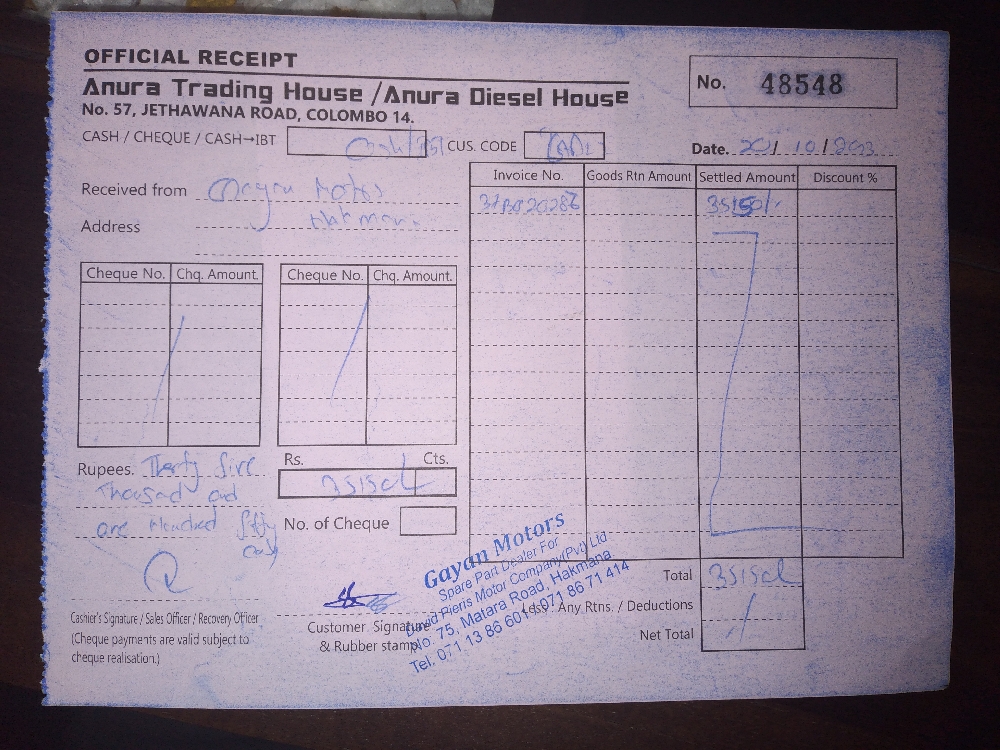 OFFICIAL RECEIPT
Anura Trading House / Anura Diesel House
No. 57, JETHAWANA ROAD, COLOMBO 14.
No. 48548
CASH / CHEQUE / CASH→IBT
CUS. CODE
Date. 20/ 10 / 2023
Received from Gayan Motors
Address Hakmana
Invoice No. Goods Rtn Amount Settled Amount Discount %
35150/-
Cheque No. Chq. Amount. Cheque No. Chq. Amount.
Rupees. Thirty five
Thousand and
one Hundred fifty
Rs. Cts.
35150/-
No. of Cheque
Cashier's Signature / Sales Officer / Recovery Officer
(Cheque payments are valid subject to
cheque realisation.)
Customer Signature
& Rubber stamp
Gayan Motors
Spare Part Dealer For
David Pieris Motor Company(Pvt) Ltd
No: 75, Matara Road, Hakmana.
Tel: 071 13 86 601, 071 86 71 414
Total 35150/-
Less: Any Rtns. / Deductions
Net Total